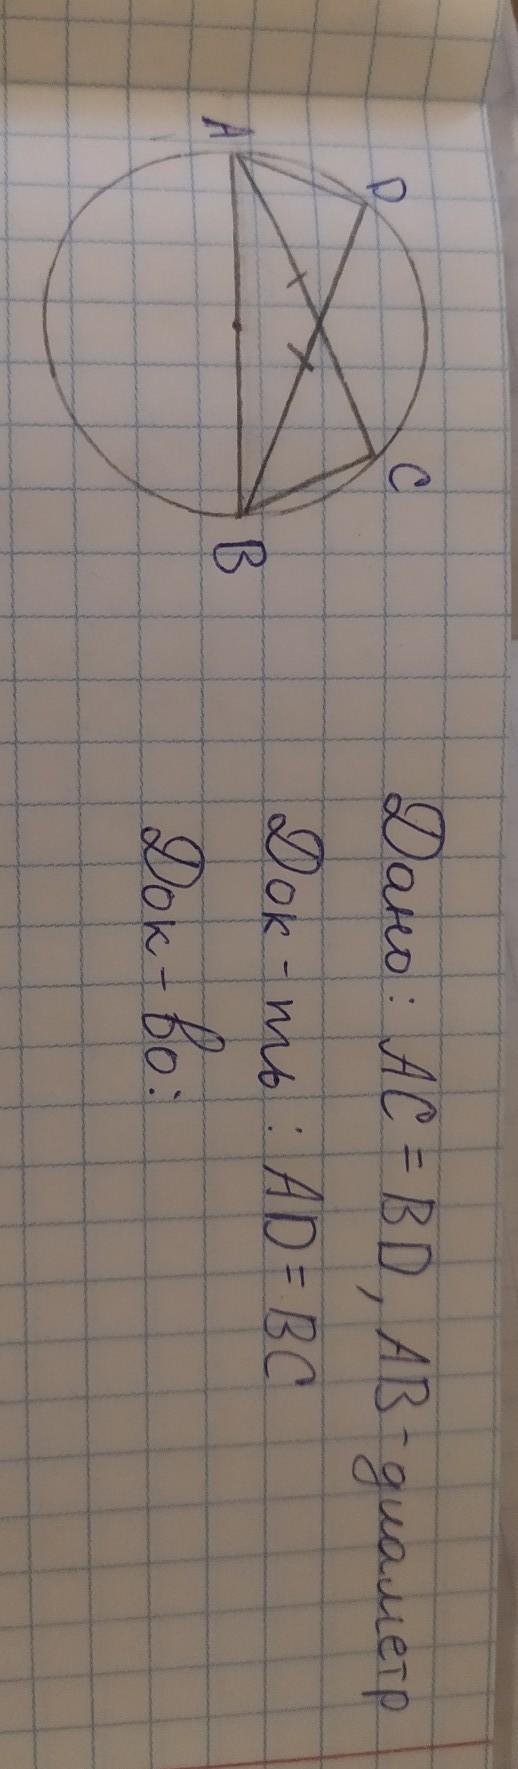 A
D
C
B
Дано: AC = BD, AB - диаметр
Док-ть: AD = BC
Док-во: